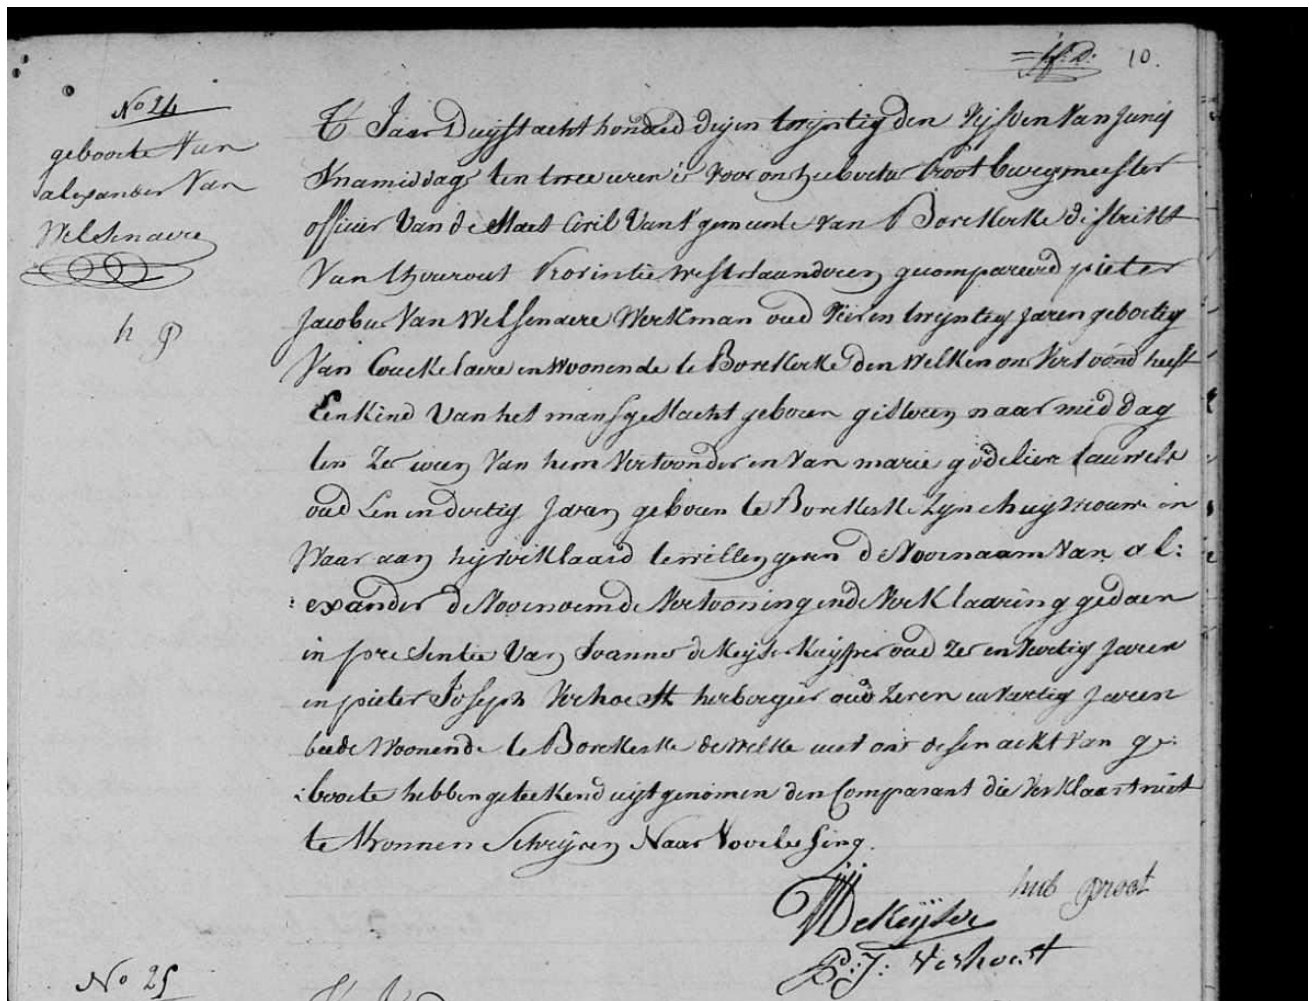 10.
No 24
geboorte Van
alexander Van
Welsenaere
h P
T Jaar Duijst acht honderd dryen twyntig den Vijfden Van Junij
S'namiddags ten twee uren is voor ons huebertus Proot burgmeester
officier Van de Staet Civil Van t' gemeente van Borekerke district
Van thourout Provintie Westvlaanderen gecompareerd pieter
Jacobus Van Welsenaere Werkman oud Vier en twyntig Jaren geboetig
Van Couckelaere en Woonende te Borekerke den Welken ons Vertoond heeft
Een Kind Van het mansgeslacht geboren gisteren naar middag
ten Zes uren Van hem Vertoonder en Van marie godelieve Lauwels
oud Een en dertig Jaren geboren te Borekerke Zyne huysvrouw en
Waar aan hij verklaard te willen geven de Voornaam Van al:
:exander de Voornoemde Vertooning ende Verklaaring gedaen
in presentie Van Joannes de Keyser Kuyper oud Zes en Veertig Jaren
en pieter Joseph Verhaest herbergier oud Zeven en Veertig Jaren
beede Woonende te Borekerke de Welke met ons desen ackt Van ge:
:boorte hebben geteekend uijtgenomen den Comparant die Verklaart niet
te Konnen Schryven Naar Voorlesing.
hub Proot
DeKeyser
P: J: Verhaest
No 25